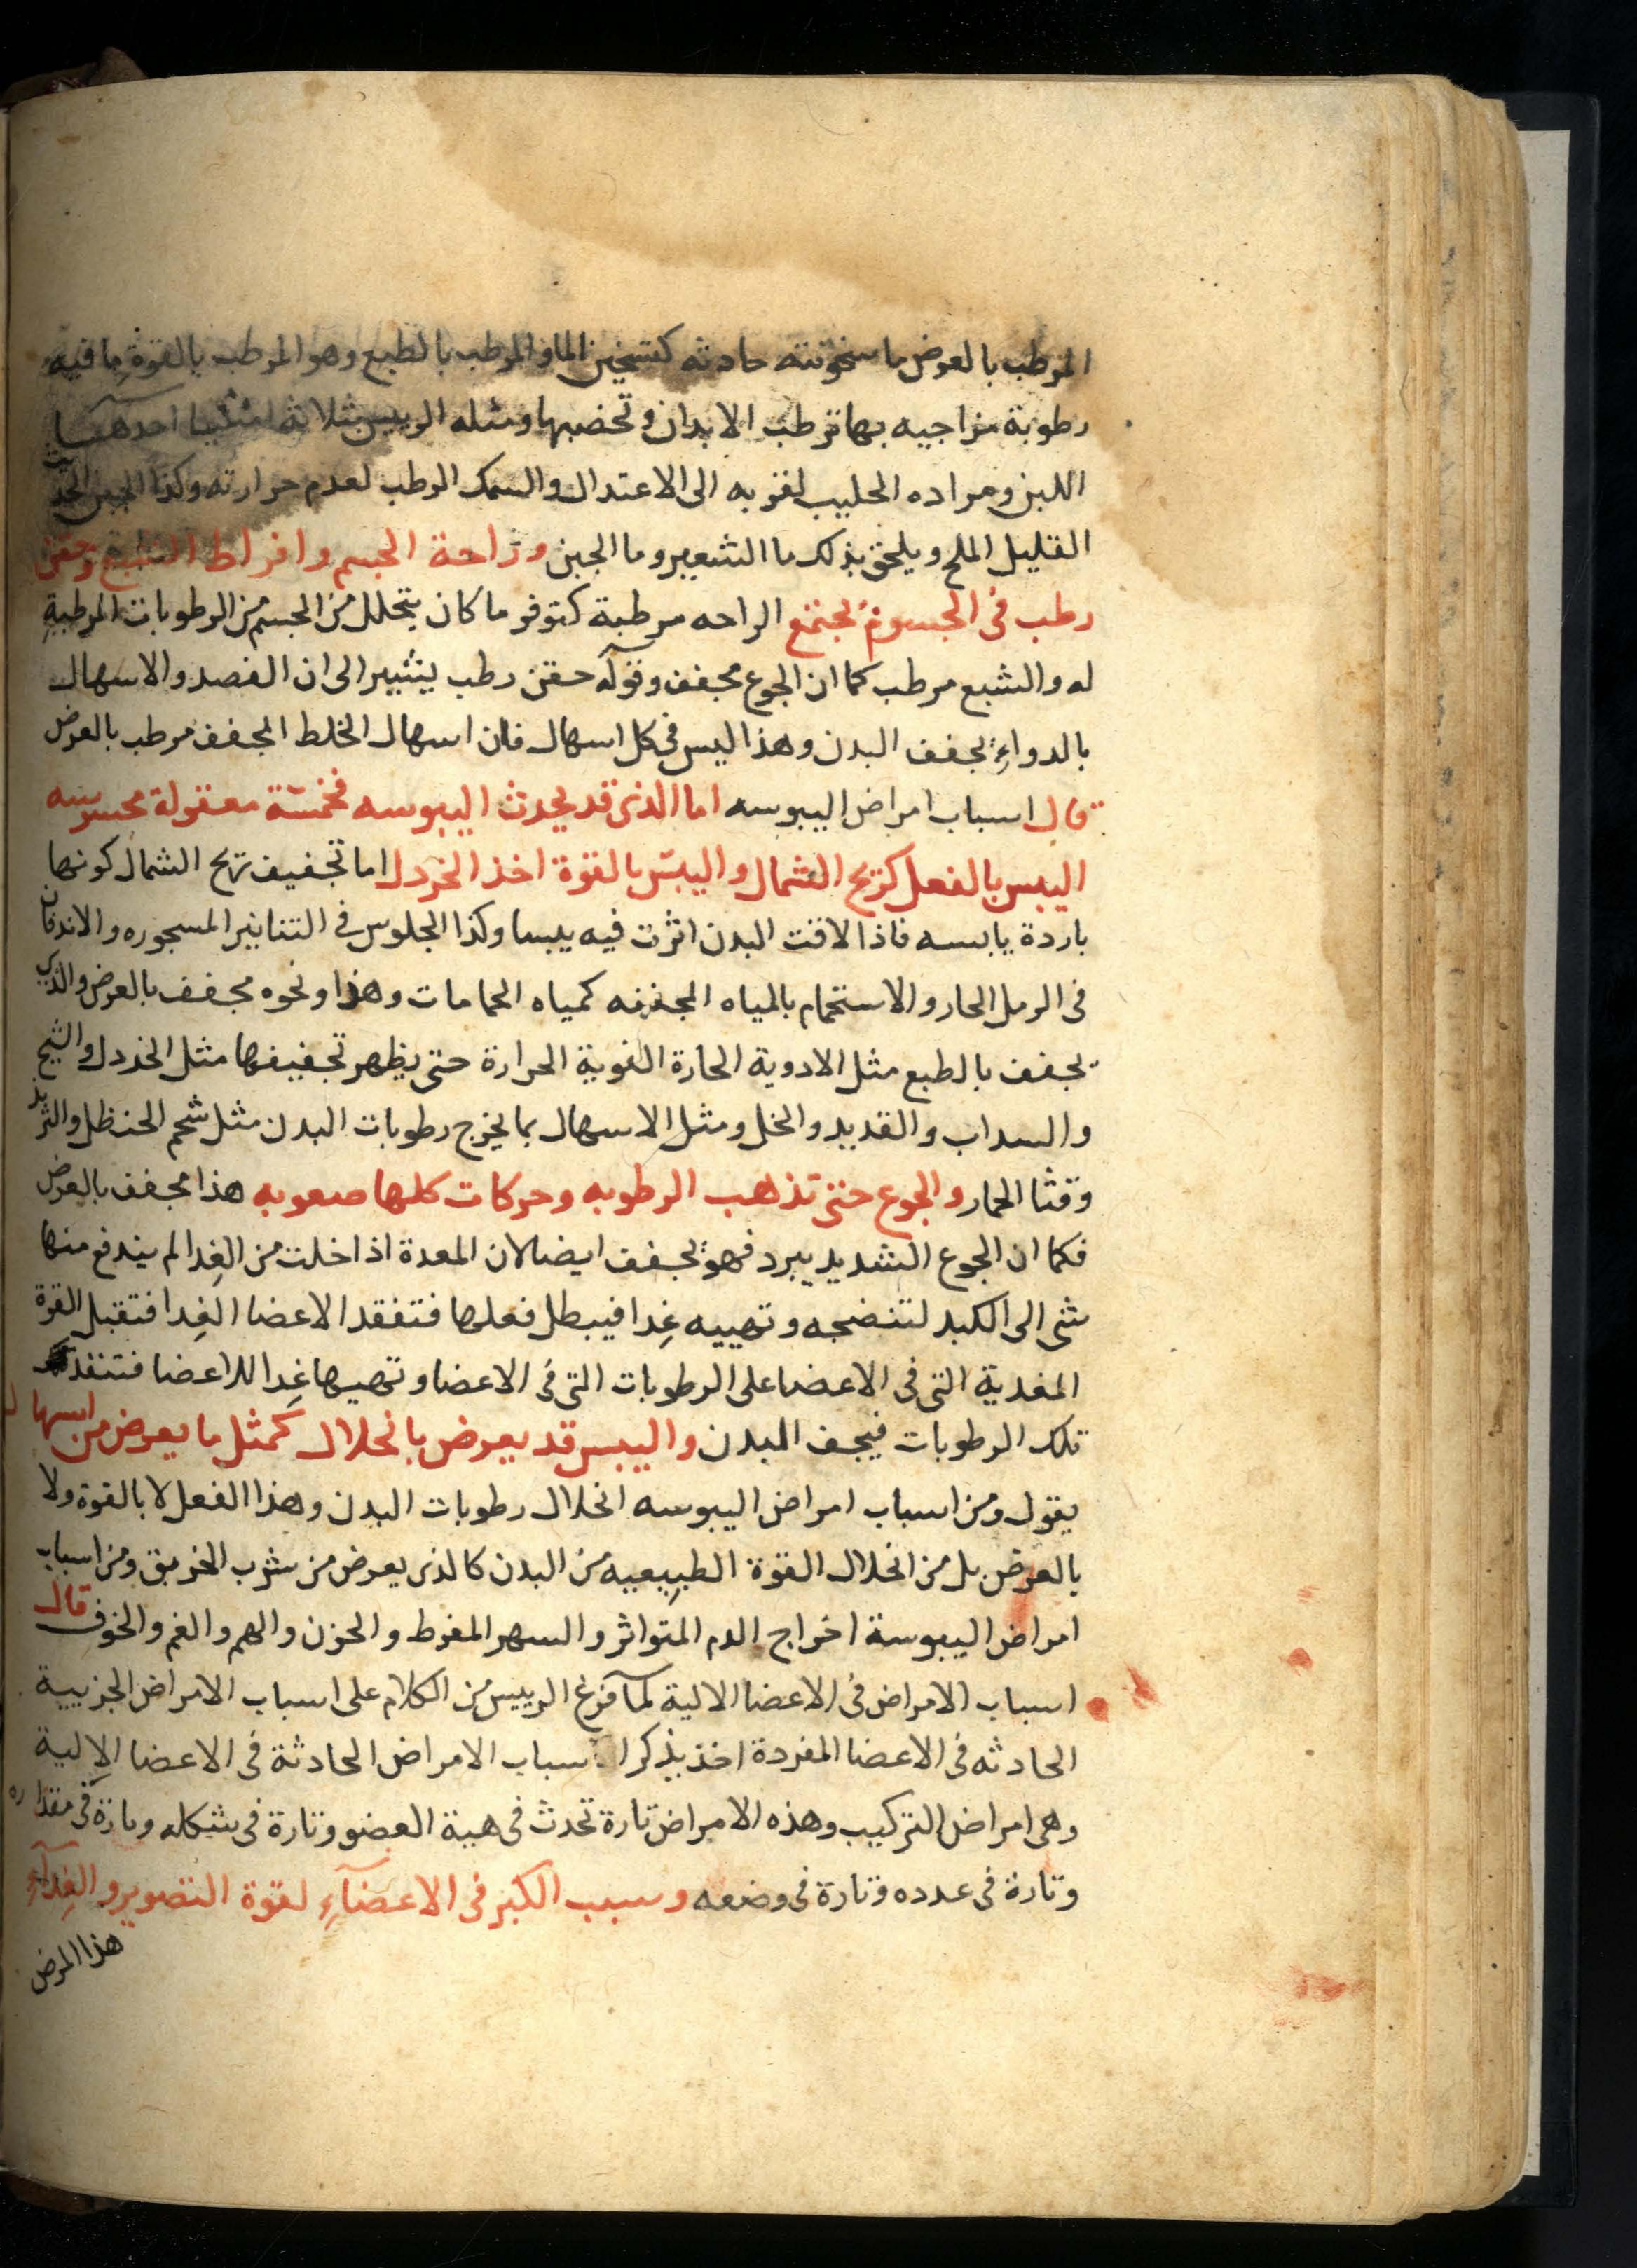 المرطب بالعرض ما سخونته حادثه كتسخين الما والمرطب بالطبع وهو المرطب بالقوة ما فيه
رطوبة مزاجيه بها ترطب الابدان وتخصبها ومثله الرييس بثلاثة اشيا احدها
اللبن ومراده الحليب لقربه الى الاعتدال والسمك الرطب لعدم حرارته وكذا الجبن الحديث
القليل الملح ويلحق بذلك ما الشعير وما الجبن وراحة الجسم وافراط الشبع وحقن
رطب في الجسوم يجتمع الراحه مرطبة كتوفر ما كان يتحلل من الجسم من الرطوبات المرطبة
له والشبع مرطب كما ان الجوع مجفف وقوله حقن رطب يشير الى ان الفصد والاسهال
بالدواء يجفف البدن وهذا ليس في كل اسهال فان اسهال الخلط المجفف مرطب بالعرض
قال اسباب امراض اليبوسه اما الذى قد يحدث اليبوسه فخمسة معقولة محسوسه
اليبس بالفعل كريح الشمال واليبس بالقوة اخذ الخردل اما تجفيف ريح الشمال كونها
باردة يابسه فاذا لاقت البدن اثرت فيه يبسا وكذا الجلوس في التنانير المسجوره والاندفان
فى الرمل الحار والاستحمام بالمياه المجففه كمياه الحمامات وهذا ونحوه مجفف بالعرض والذى
يجفف بالطبع مثل الادوية الحارة القوية الحرارة حتى يظهر تجفيفها مثل الخردل والشيح
والسداب والقديد والخل ومثل الاسهال بما يخرج رطوبات البدن مثل شحم الحنظل والتربد
وقثا الحمار والجوع حتى تذهب الرطوبه وحركات كلها صعوبه هذا مجفف بالعرض
فكما ان الجوع الشديد يبرد فهو يجفف ايضا لان المعدة اذا خلت من الغدا لم يندفع منها
شى الى الكبد لتنضجه وتهييه غدا فيبطل فعلها فتفقد الاعضا الغدا فتقبل القوة
المغدية التى فى الاعضا على الرطوبات التى فى الاعضا وتهييها غدا للاعضا فتنفد
تلك الرطوبات فيجف البدن واليبس قد يعرض بانحلال كمثل ما يعرض من اسهال
يقول ومن اسباب امراض اليبوسه انحلال رطوبات البدن وهذا الفعل لا بالقوة ولا
بالعرض بل من انحلال القوة الطبيعيه من البدن كالذى يعرض من شرب الخربق ومن اسباب
امراض اليبوسة اخراج الدم المتواتر والسهر المفرط والحزن والهم والغم والخوف قال
اسباب الامراض فى الاعضا الالية لما فرغ الرييس من الكلام على اسباب الامراض الجزيية
الحادثه فى الاعضا المفردة اخذ يذكر اسباب الامراض الحادثة فى الاعضا الالية
وهى امراض التركيب وهذه الامراض تارة تحدث فى هية العضو وتارة فى شكله وتارة فى مقداره
وتارة فى عدده وتارة فى وضعه وسبب الكبر فى الاعضآء لقوة التصوير والغدآء
هذا المرض